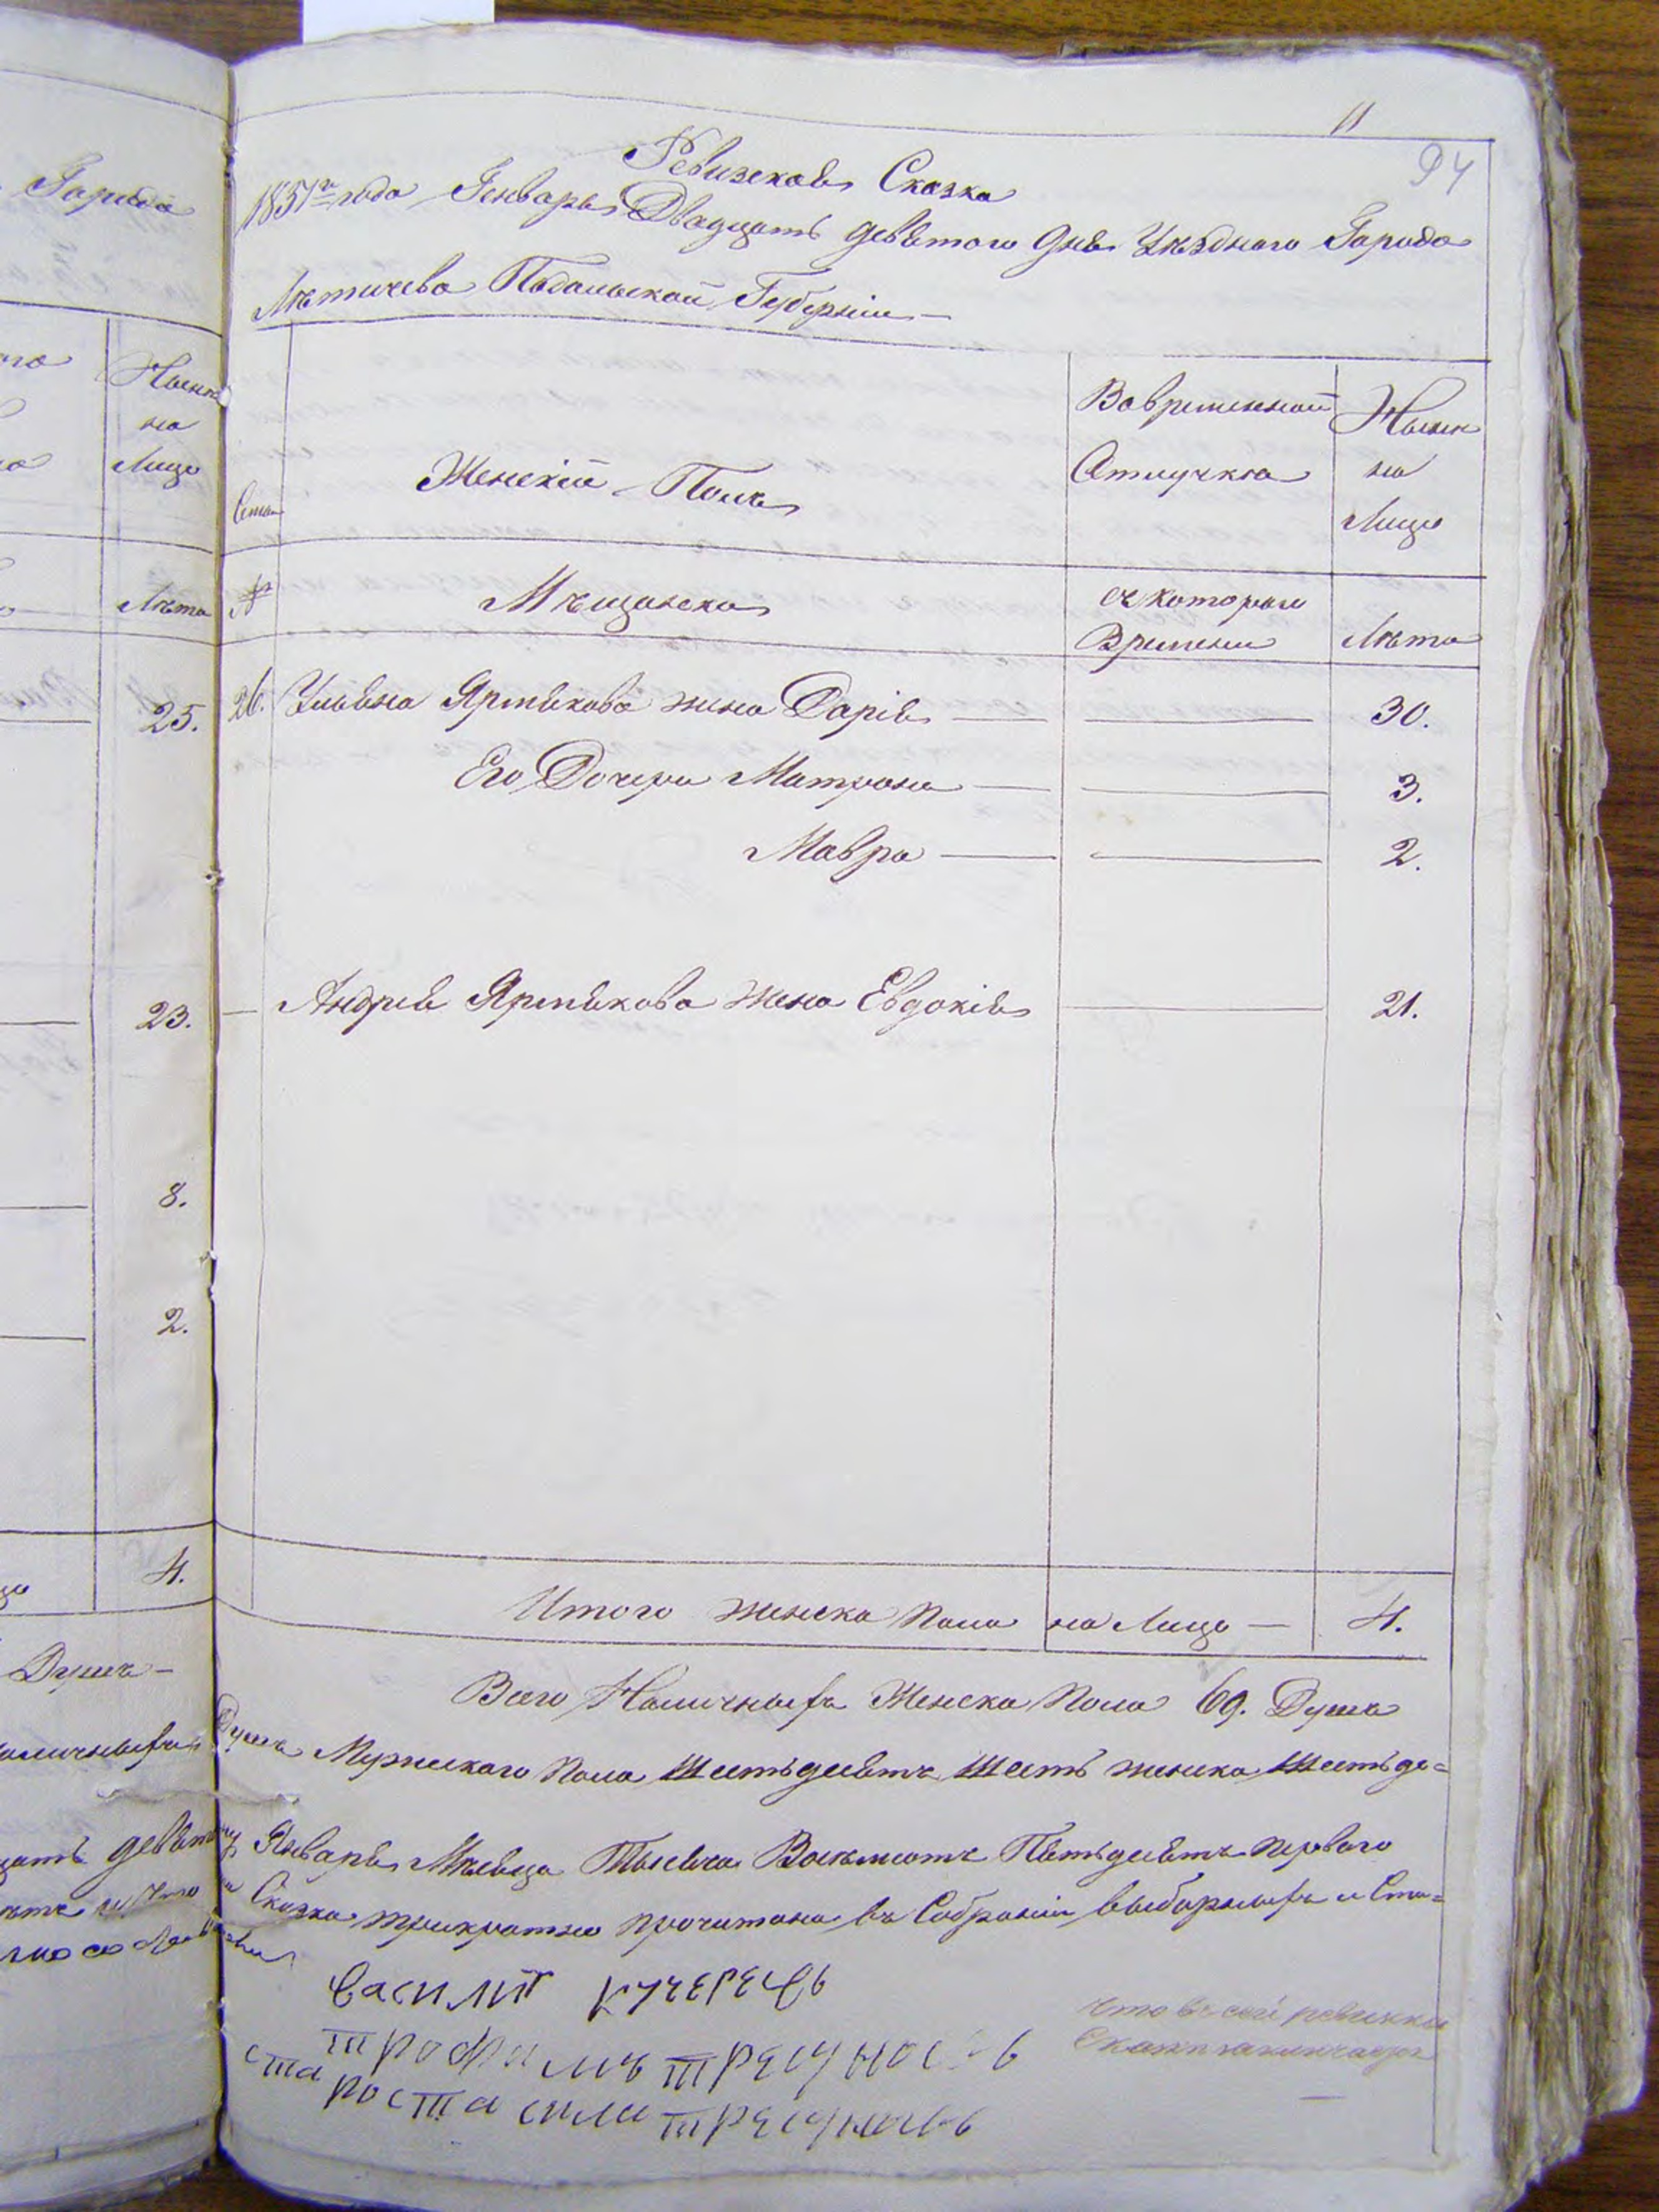 Города
Нынѣ
на
Лицо
Лѣта
25.
23.
8.
2.
4.
Душъ —
11
94
Ревизская Сказка
1851го года Генваря Двадцать девятого дня Уѣзднаго Города
Лѣтичева Подольской Губерніи —
Семьи
Женскій Полъ
Вовременной
Отлучкѣ
Нынѣ
на
Лицо
№
Мѣщанска
съ котораго
Времени
Лѣта
26. Ульяна Ярмякова жена Дарія — — 30.
Его Дочери Матрона — — 3.
Мавра — — 2.
— Андрея Ярмякова жена Евдокія — 21.
Итого женска пола на Лицо — 4.
Всего Наличныхъ Женска пола 69. Душъ
Душъ Мужескаго пола Шестьдесятъ Шесть женска Шестьде=
Января Мѣсяца Тысяча Восемьсотъ Пятьдесятъ перваго
Сказка трикратно прочитана въ Собраніи выборныхъ и Ста=
Василит Кучерець
Трофимъ
староста
что въ сей ревизкой
Сказки